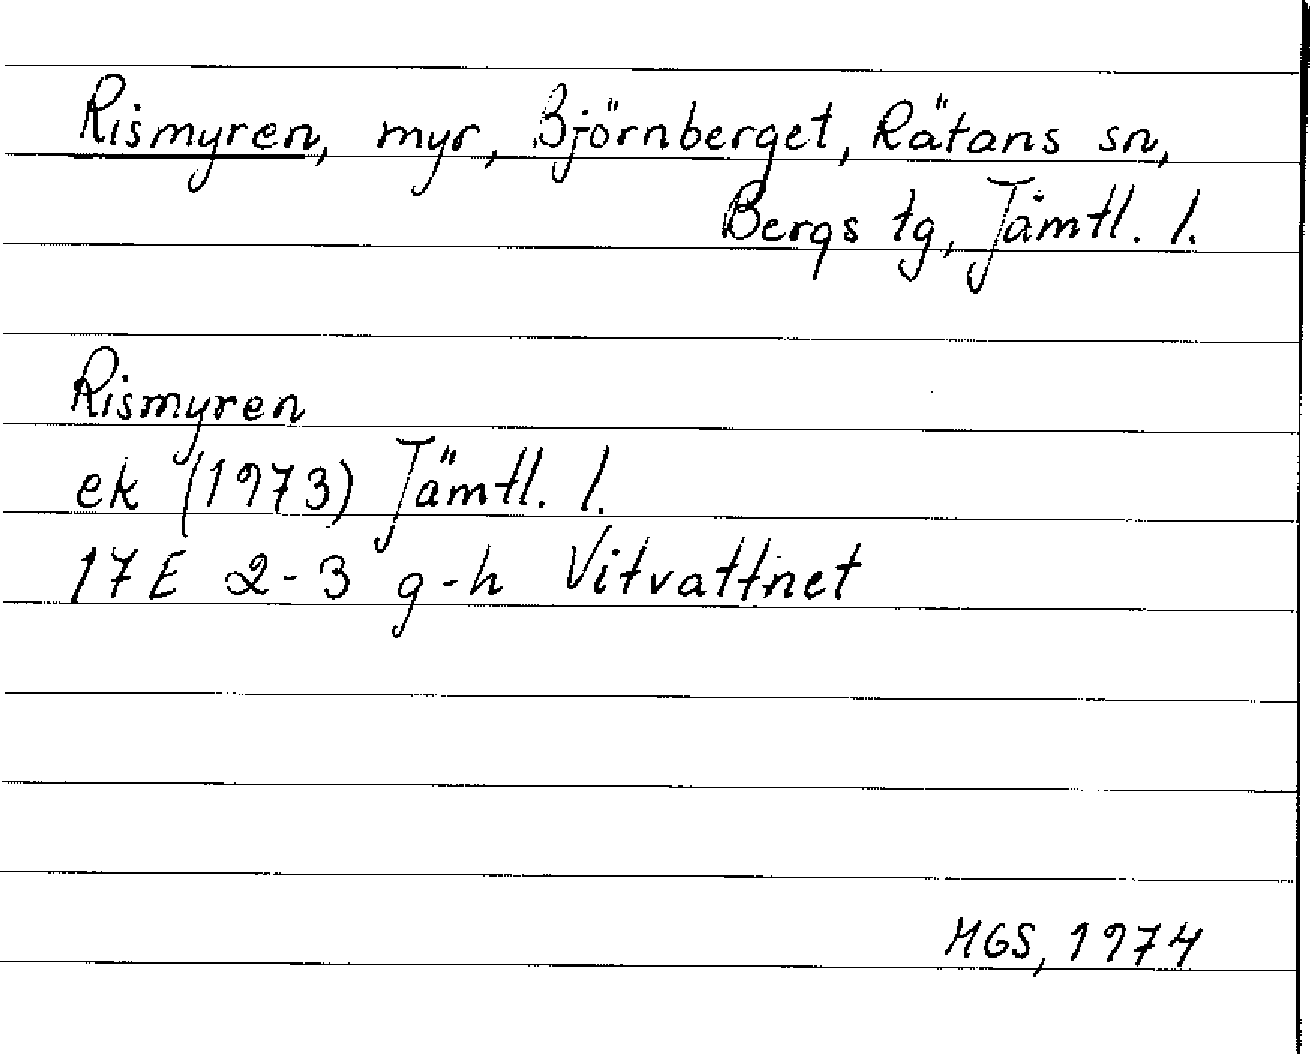 Rismyren, myr, Björnberget, Rätans sn,
Bergs tg, Jämtl. l.
Rismyren
ek (1973) Jämtl. l.
17E 2-3 g-h Vitvattnet
MGS, 1974